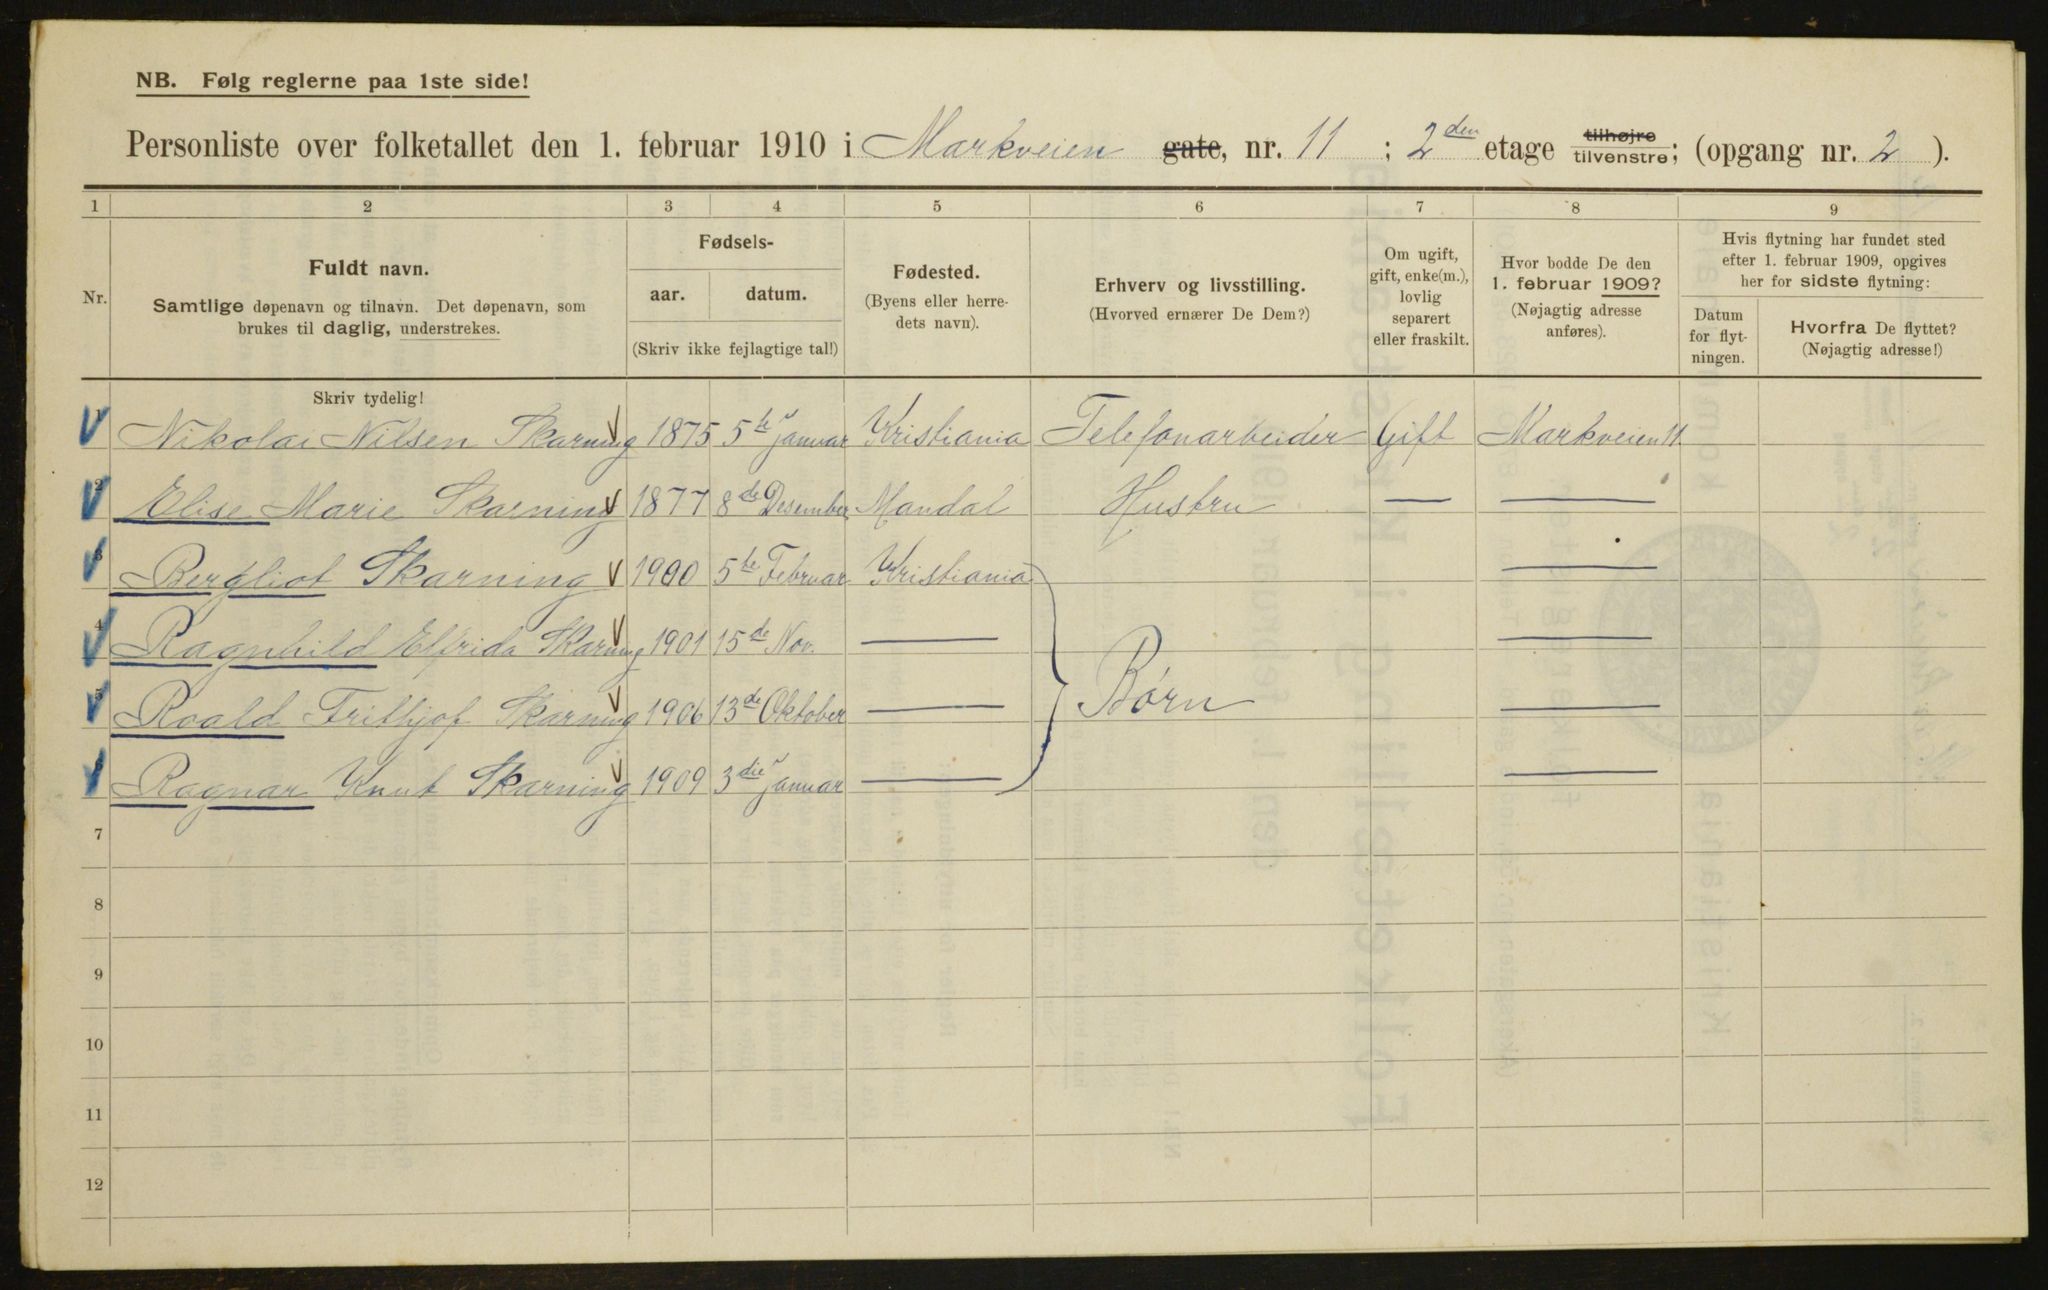 NB. Følg reglerne paa 1ste side!
Personliste over folketallet den 1. februar 1910 i Markveien gate, nr. 11 ; 2den etage tilhøjre tilvenstre; (opgang nr. 2 ).
1 2 3 4 5 6 7 8 9
Nr.
Fuldt navn.
Samtlige døpenavn og tilnavn. Det døpenavn, som
brukes til daglig, understrekes.
Fødsels-
aar. datum.
(Skriv ikke fejlagtige tal!)
Fødested.
(Byens eller herre-
dets navn).
Erhverv og livsstilling.
(Hvorved ernærer De Dem?)
Om ugift,
gift, enke(m.),
lovlig
separert
eller fraskilt.
Hvor bodde De den
1. februar 1909?
(Nøjagtig adresse
anføres).
Hvis flytning har fundet sted
efter 1. februar 1909, opgives
her for sidste flytning:
Datum
for flyt-
ningen.
Hvorfra De flyttet?
(Nøjagtig adresse!)
Skriv tydelig!
1 Nikolai Nilsen Skarning 1875 5te januar Kristiania Telefonarbeider Gift Markveien 11
2 Elise Marie Skarning 1877 8de Desember Mandal Hustru — —
3 Bergliot Skarning 1900 5te Februar Kristiania —
4 Ragnhild Elfrida Skarning 1901 15de Nov. — —
5 Roald Frithjof Skarning 1906 13de Oktober — Børn —
6 Ragnar Knut Skarning 1909 3die januar — —
7
8
9
10
11
12